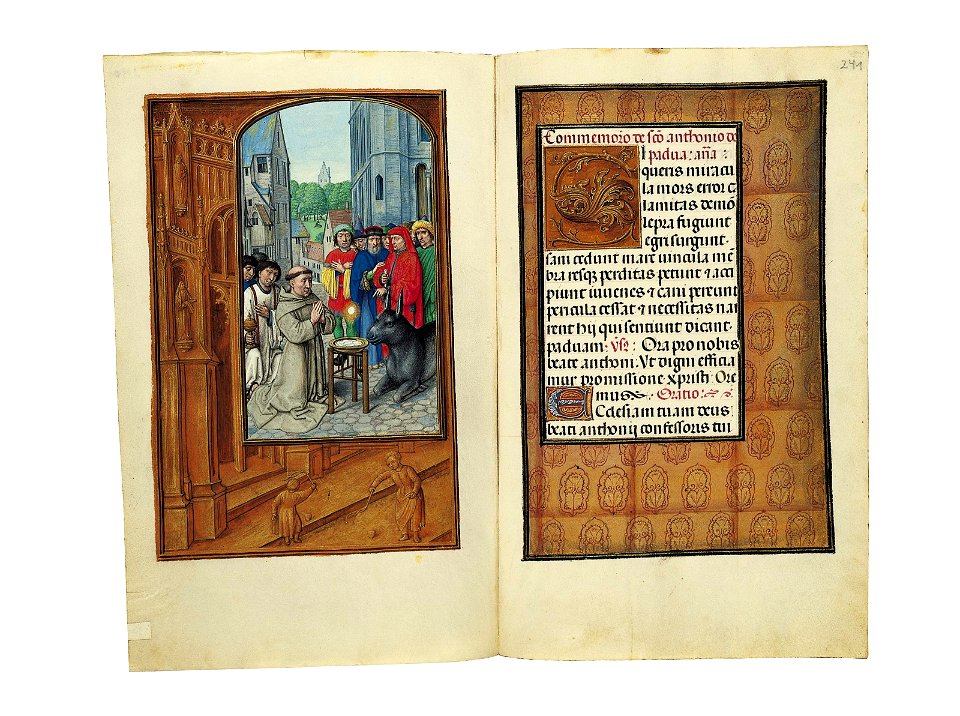 241
Commemoro de sco anthonio de
padua: aña:
Si
queris miracu
la mors error c̄
lamitas demō
lepra fugiunt
egri surgunt.
sani cedunt mare uincula mē
bra resq̄ perditas petunt & acci
piunt iuuenes & cani pereunt
pericula cessat & necessitas nar
rent hij qui sentiunt dicant
paduani. v̄s: Ora pro nobis
beate anthoni: Vt digni efficia
mur promissione xpristi: Ore
mus Oratio:
Ecclesiam tuam deus
beati anthonij confessoris tui